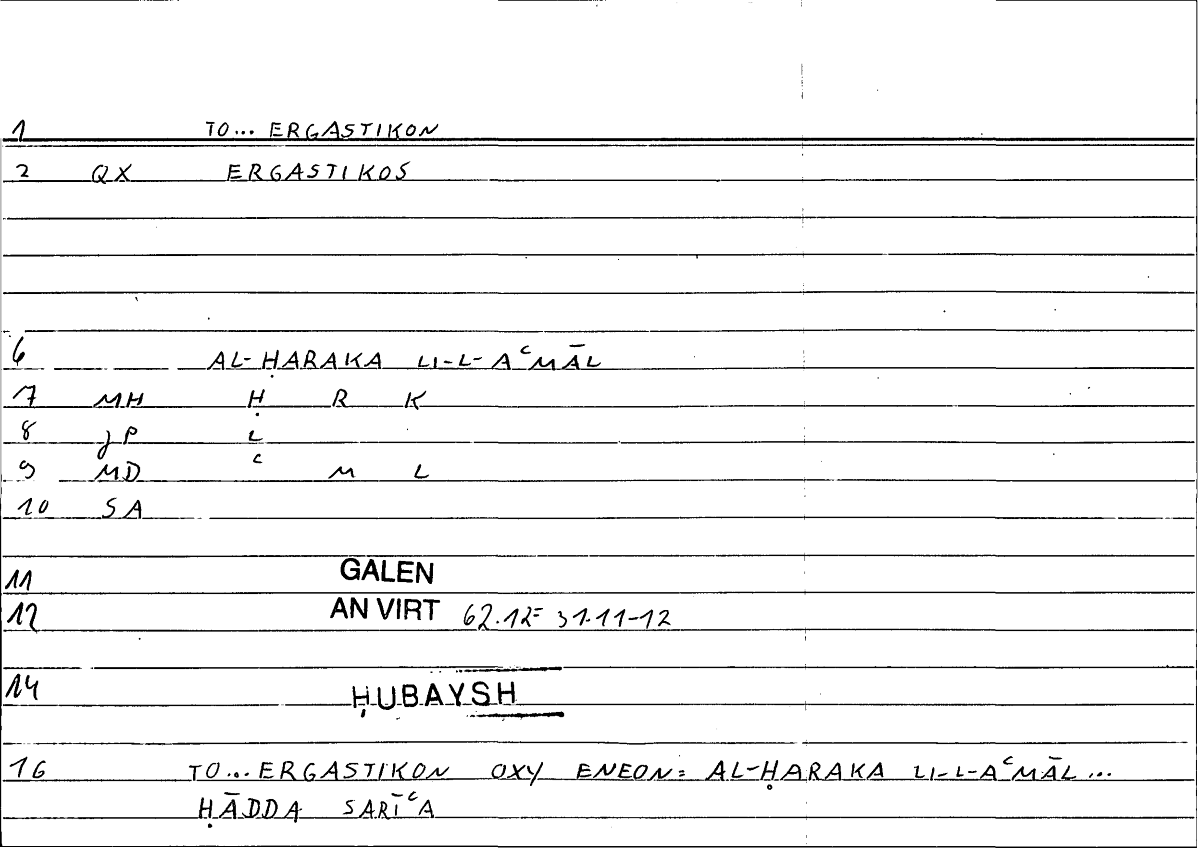 1 TO... ERGASTIKON
2 QX ERGASTIKOS
6 AL-ḤARAKA LI-L-AᶜMĀL
7 MH Ḥ R K
8 JP L
9 MD ᶜ M L
10 SA
11 GALEN
12 AN VIRT 62.12= 31.11-12
14 ḤUBAYSH
16 TO... ERGASTIKON OXY ENEON= AL-ḤARAKA LI-L-AᶜMĀL...
ḤĀDDA SARĪᶜA